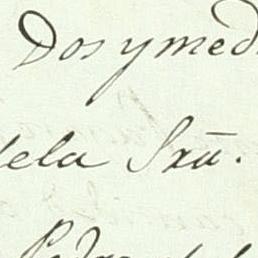 Dos y med
dela Sxã.